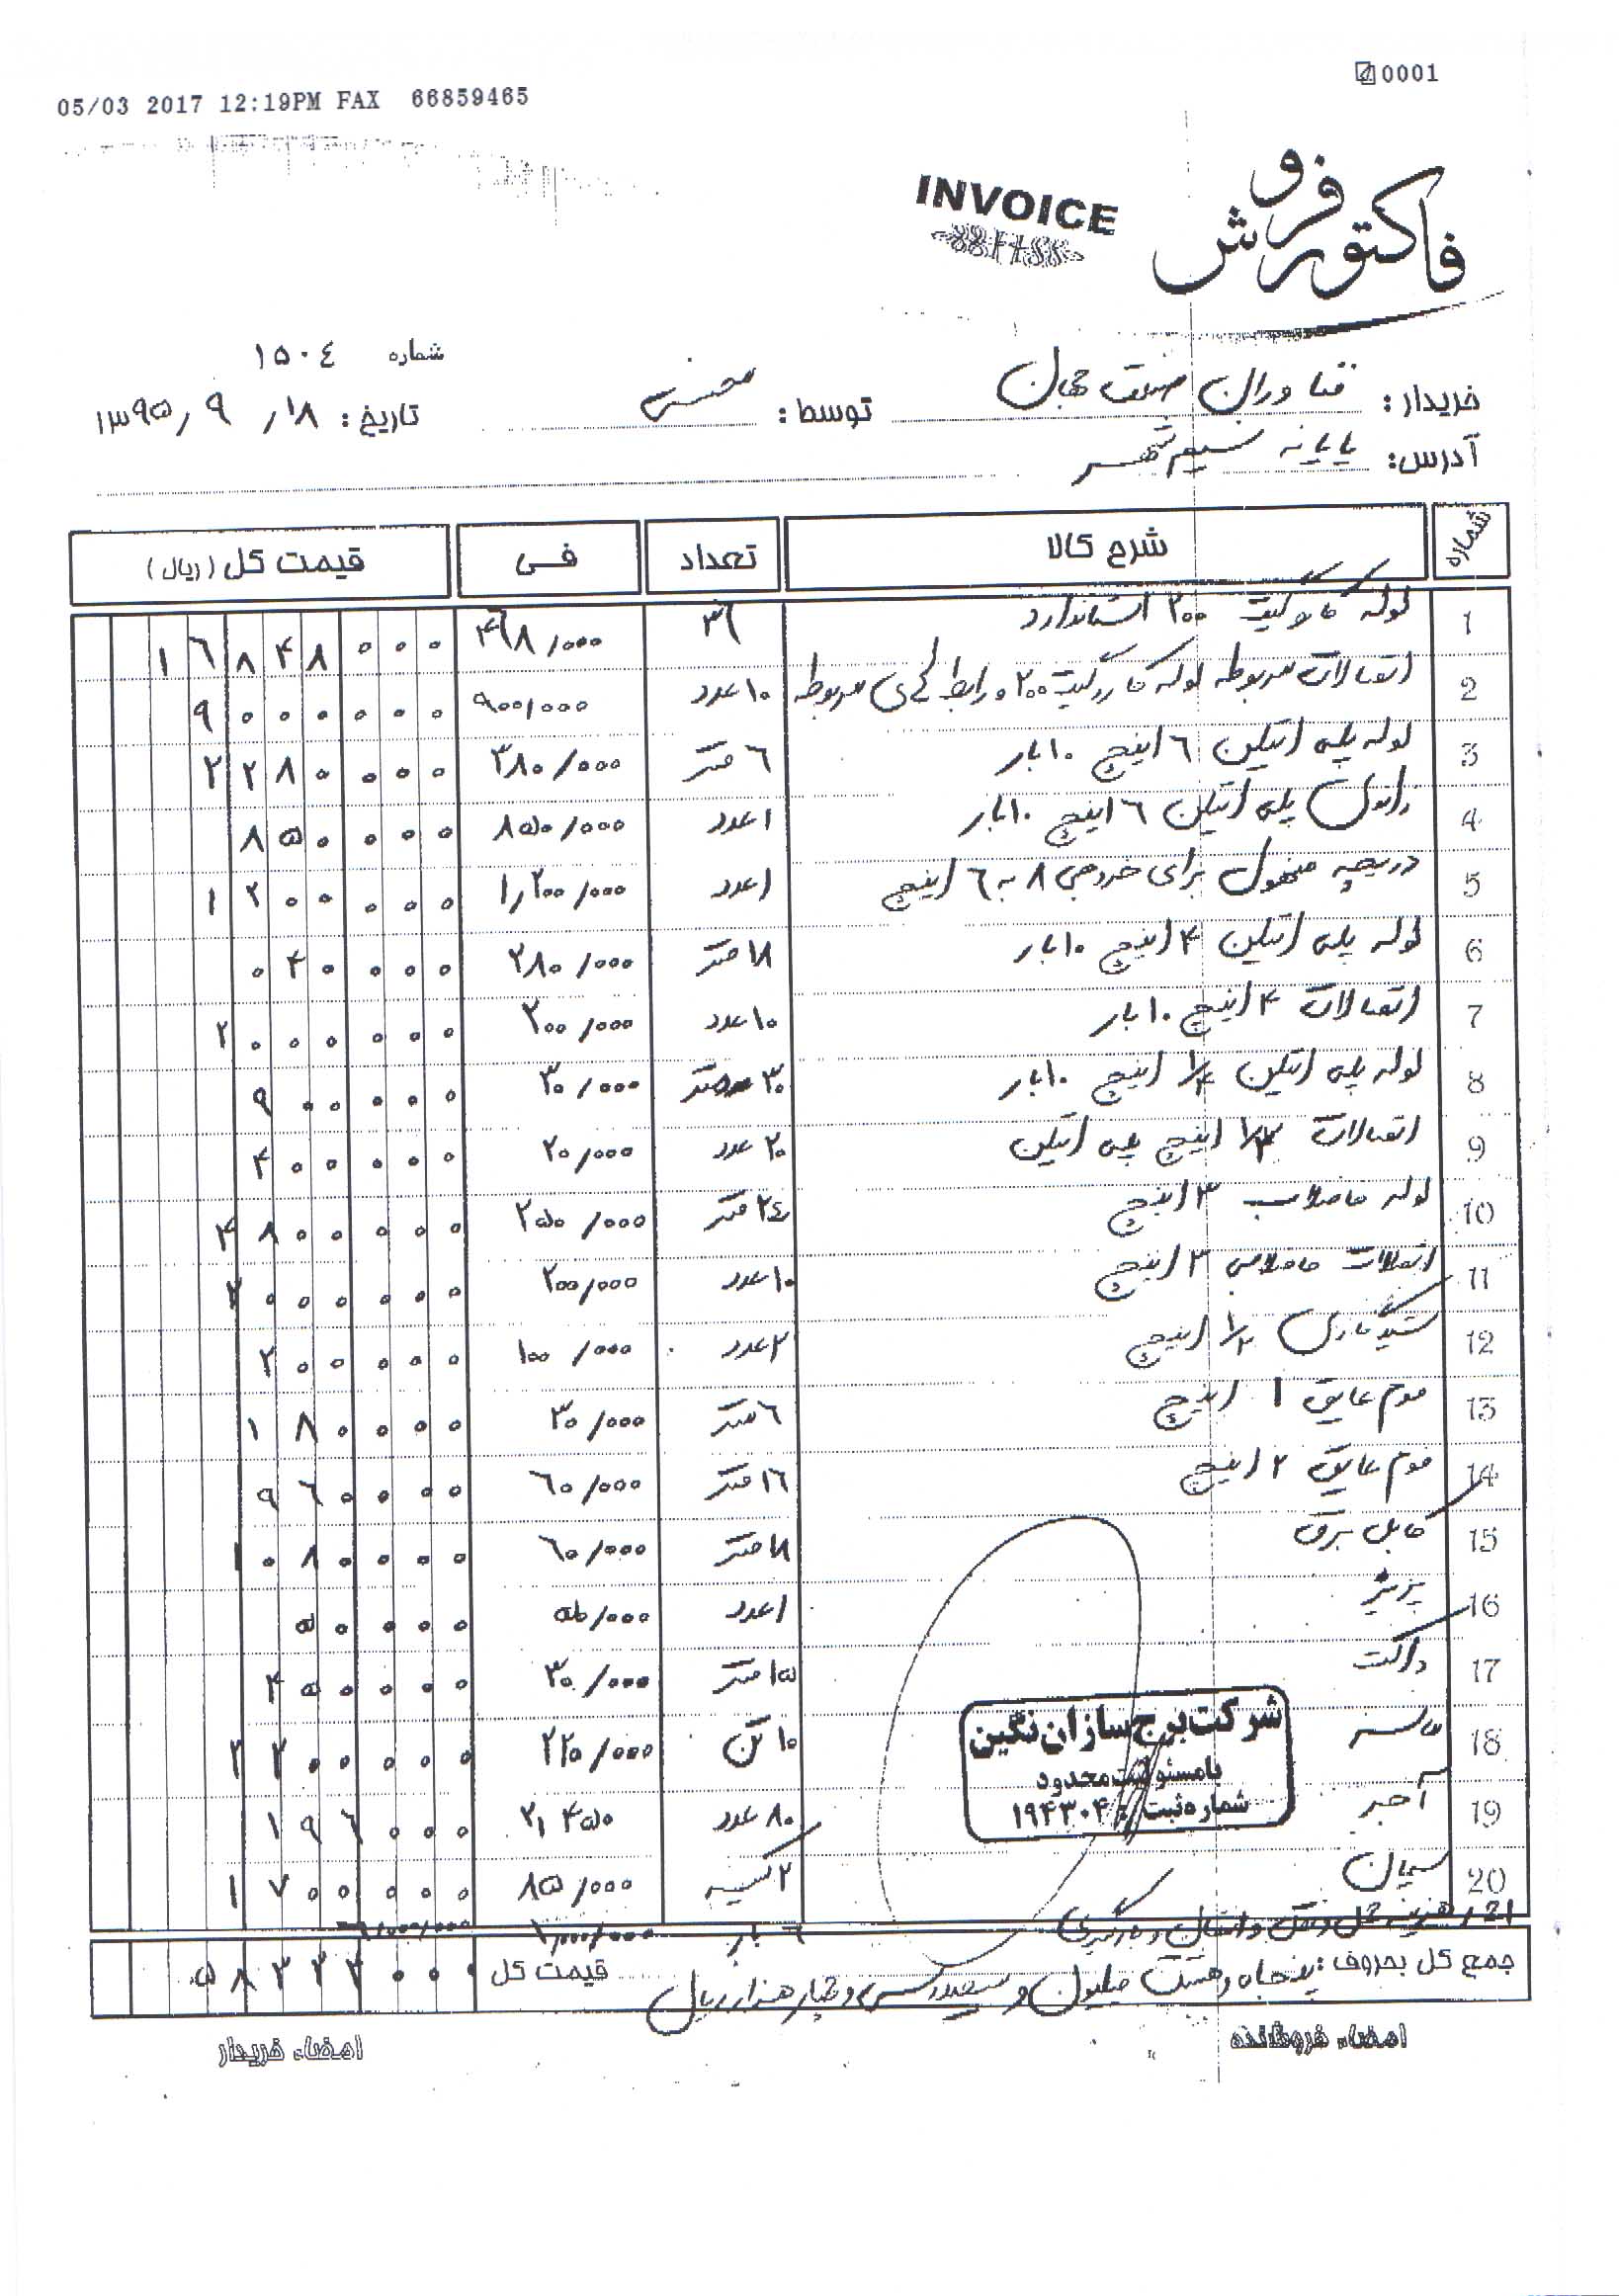 05/03 2017 12:19PM FAX 66859465
0001
فاکتور فروش
INVOICE
شماره ۱۵۰٤
خریدار: فناوران صنعت جهان توسط: محسنی تاریخ: ۱۳۹۵/۹/۱۸
آدرس: پایانه نسیم شهر
شماره شرح کالا تعداد فی قیمت کل (ریال)
1 لوله کاروگیت ۲۰۰ استاندارد ۳٦ ۴٦۸/۰۰۰ ۱٦۸۴۸۰۰۰
2 اتصالات مربوطه لوله کاروگیت ۲۰۰ و رابط های مربوطه ۱۰ عدد ۹۰۰/۰۰۰ ۹۰۰۰۰۰۰
3 لوله پلی اتیلن ٦ اینچ ۱۰ بار ٦ متر ۳۸۰/۰۰۰ ۲۲۸۰۰۰۰
4 زانوی پلی اتیلن ٦ اینچ ۱۰ بار ۱ عدد ۸۵۰/۰۰۰ ۸۵۰۰۰۰
5 دریچه منهول برای خروجی ۸ به ٦ اینچ ۱ عدد ۱/۲۰۰/۰۰۰ ۱۲۰۰۰۰۰
6 لوله پلی اتیلن ۴ اینچ ۱۰ بار ۱۸ متر ۲۸۰/۰۰۰ ۰۴۰۰۰۰
7 اتصالات ۴ اینچ ۱۰ بار ۱۰ عدد ۲۰۰/۰۰۰ ۲۰۰۰۰۰۰
8 لوله پلی اتیلن اینچ ۱۰ بار ۳۰ متر ۳۰/۰۰۰ ۹۰۰۰۰۰
9 اتصالات اینچ پلی اتیلن ۲۰ عدد ۲۰/۰۰۰ ۴۰۰۰۰۰
10 لوله فاضلاب ۳ اینچ ۲٤ متر ۲۰۰/۰۰۰ ۴۸۰۰۰۰۰
11 اتصالات فاضلابی ۳ اینچ ۱۰ عدد ۲۰۰/۰۰۰ ۲۰۰۰۰۰۰
12 شیر گازی ۱/۲ اینچ ۲ عدد ۱۰۰/۰۰۰ ۲۰۰۰۰۰
13 فوم عایق ۱ اینچ ٦ متر ۳۰/۰۰۰ ۱۸۰۰۰۰
14 فوم عایق ۲ اینچ ۱٦ متر ٦۰/۰۰۰ ۹٦۰۰۰۰
15 کابل برق ۱۸ متر ٦۰/۰۰۰ ۱۰۸۰۰۰۰
16 پریز ۱ عدد ۵۰/۰۰۰ ۵۰۰۰۰
17 داکت ۱۵ متر ۳۰/۰۰۰ ۴۵۰۰۰۰
18 ماسه ۱۰ تن ۲۲۰/۰۰۰ ۲۲۰۰۰۰۰
19 آجر ۸۰ عدد ۲/۴۵۰ ۱۹٦۰۰۰
20 سیمان ۲ کیسه ۸۵/۰۰۰ ۱۷۰۰۰۰
21 هزینه حمل و نقل و انتقال و بارگیری ٦ بار ۱/۰۰۰/۰۰۰ ٦/۰۰۰/۰۰۰
جمع کل بحروف: پنجاه و هشت میلیون و سیصد و سی و چهار هزار ریال قیمت کل ۵۸۳۳۴۰۰۰
شرکت برج سازان نگین
با مسئولیت محدود
شماره ثبت: ۱۹۴۳۰۴
امضاء فروشنده امضاء خریدار